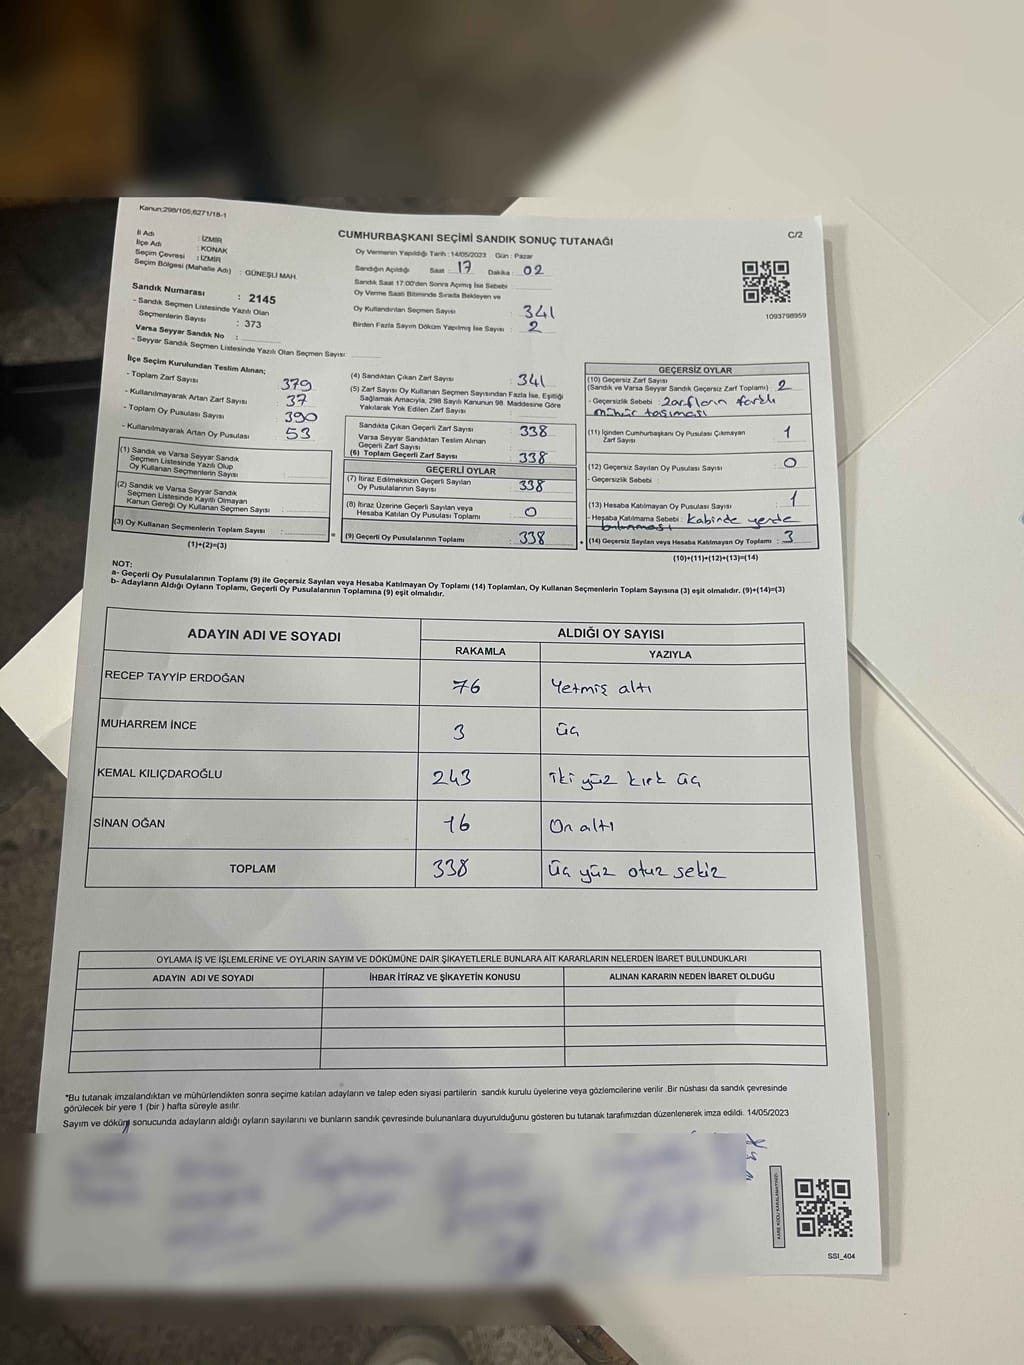 Kanun:298/105;6271/18-1
C/2
CUMHURBAŞKANI SEÇİMİ SANDIK SONUÇ TUTANAĞI
İl Adı : İZMİR
İlçe Adı : KONAK
Seçim Çevresi : İZMİR
Seçim Bölgesi (Mahalle Adı) : GÜNEŞLİ MAH.
Sandık Numarası : 2145
- Sandık Seçmen Listesinde Yazılı Olan
Seçmenlerin Sayısı : 373
Varsa Seyyar Sandık No :
- Seyyar Sandık Seçmen Listesinde Yazılı Olan Seçmen Sayısı:
Oy Vermenin Yapıldığı Tarih :14/05/2023 Gün : Pazar
Sandığın Açıldığı Saat : 17 Dakika : 02
Sandık Saat 17.00'den Sonra Açılmış İse Sebebi
Oy Verme Saati Bitiminde Sırada Bekleyen ve
Oy Kullandırılan Seçmen Sayısı : 341
Birden Fazla Sayım Döküm Yapılmış İse Sayısı : 2
1093798959
İlçe Seçim Kurulundan Teslim Alınan;
- Toplam Zarf Sayısı : 379
- Kullanılmayarak Artan Zarf Sayısı : 37
- Toplam Oy Pusulası Sayısı : 390
- Kullanılmayarak Artan Oy Pusulası : 53
(1) Sandık ve Varsa Seyyar Sandık
Seçmen Listesinde Yazılı Olup
Oy Kullanan Seçmenlerin Sayısı :
(2) Sandık ve Varsa Seyyar Sandık
Seçmen Listesinde Kayıtlı Olmayan
Kanun Gereği Oy Kullanan Seçmen Sayısı :
(3) Oy Kullanan Seçmenlerin Toplam Sayısı :
(1)+(2)=(3)
(4) Sandıktan Çıkan Zarf Sayısı : 341
(5) Zarf Sayısı Oy Kullanan Seçmen Sayısından Fazla İse, Eşitliği
Sağlamak Amacıyla, 298 Sayılı Kanunun 98. Maddesine Göre
Yakılarak Yok Edilen Zarf Sayısı :
Sandıkta Çıkan Geçerli Zarf Sayısı : 338
Varsa Seyyar Sandıktan Teslim Alınan
Geçerli Zarf Sayısı :
(6) Toplam Geçerli Zarf Sayısı : 338
GEÇERLİ OYLAR
(7) İtiraz Edilmeksizin Geçerli Sayılan
Oy Pusulalarının Sayısı : 338
(8) İtiraz Üzerine Geçerli Sayılan veya
Hesaba Katılan Oy Pusulası Toplamı : 0
= (9) Geçerli Oy Pusulalarının Toplamı : 338 +
GEÇERSİZ OYLAR
(10) Geçersiz Zarf Sayısı
(Sandık ve Varsa Seyyar Sandık Geçersiz Zarf Toplamı) : 2
- Geçersizlik Sebebi : zarfların farklı
mühür taşıması
(11) İçinden Cumhurbaşkanı Oy Pusulası Çıkmayan
Zarf Sayısı : 1
(12) Geçersiz Sayılan Oy Pusulası Sayısı : 0
- Geçersizlik Sebebi :
(13) Hesaba Katılmayan Oy Pusulası Sayısı : 1
- Hesaba Katılmama Sebebi : Kabinde yerde
bulunması
(14) Geçersiz Sayılan veya Hesaba Katılmayan Oy Toplamı : 3
(10)+(11)+(12)+(13)=(14)
NOT:
a- Geçerli Oy Pusulalarının Toplamı (9) ile Geçersiz Sayılan veya Hesaba Katılmayan Oy Toplamı (14) Toplamları, Oy Kullanan Seçmenlerin Toplam Sayısına (3) eşit olmalıdır. (9)+(14)=(3)
b- Adayların Aldığı Oyların Toplamı, Geçerli Oy Pusulalarının Toplamına (9) eşit olmalıdır.
ADAYIN ADI VE SOYADI
ALDIĞI OY SAYISI
RAKAMLA YAZIYLA
RECEP TAYYİP ERDOĞAN 76 Yetmiş altı
MUHARREM İNCE 3 üç
KEMAL KILIÇDAROĞLU 243 iki yüz kırk üç
SİNAN OĞAN 16 On altı
TOPLAM 338 üç yüz otuz sekiz
OYLAMA İŞ VE İŞLEMLERİNE VE OYLARIN SAYIM VE DÖKÜMÜNE DAİR ŞİKAYETLERLE BUNLARA AİT KARARLARIN NELERDEN İBARET BULUNDUKLARI
ADAYIN ADI VE SOYADI İHBAR İTİRAZ VE ŞİKAYETİN KONUSU ALINAN KARARIN NEDEN İBARET OLDUĞU
*Bu tutanak imzalandıktan ve mühürlendikten sonra seçime katılan adayların ve talep eden siyasi partilerin sandık kurulu üyelerine veya gözlemcilerine verilir .Bir nüshası da sandık çevresinde
görülecek bir yere 1 (bir ) hafta süreyle asılır.
Sayım ve döküm sonucunda adayların aldığı oyların sayılarını ve bunların sandık çevresinde bulunanlara duyurulduğunu gösteren bu tutanak tarafımızdan düzenlenerek imza edildi. 14/05/2023
KARE KODU KARALAMAYINIZ!
SSI_404